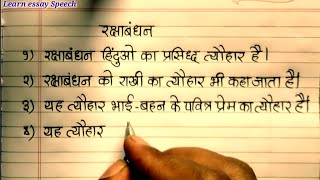 Learn essay Speech
रक्षाबंधन
१) रक्षाबंधन हिंदुओ का प्रसिद्ध त्यौहार है।
२) रक्षाबंधन को राखी का त्यौहार भी कहा जाता है।
३) यह त्यौहार भाई-बहन के पवित्र प्रेम का त्यौहार है।
४) यह त्यौहार